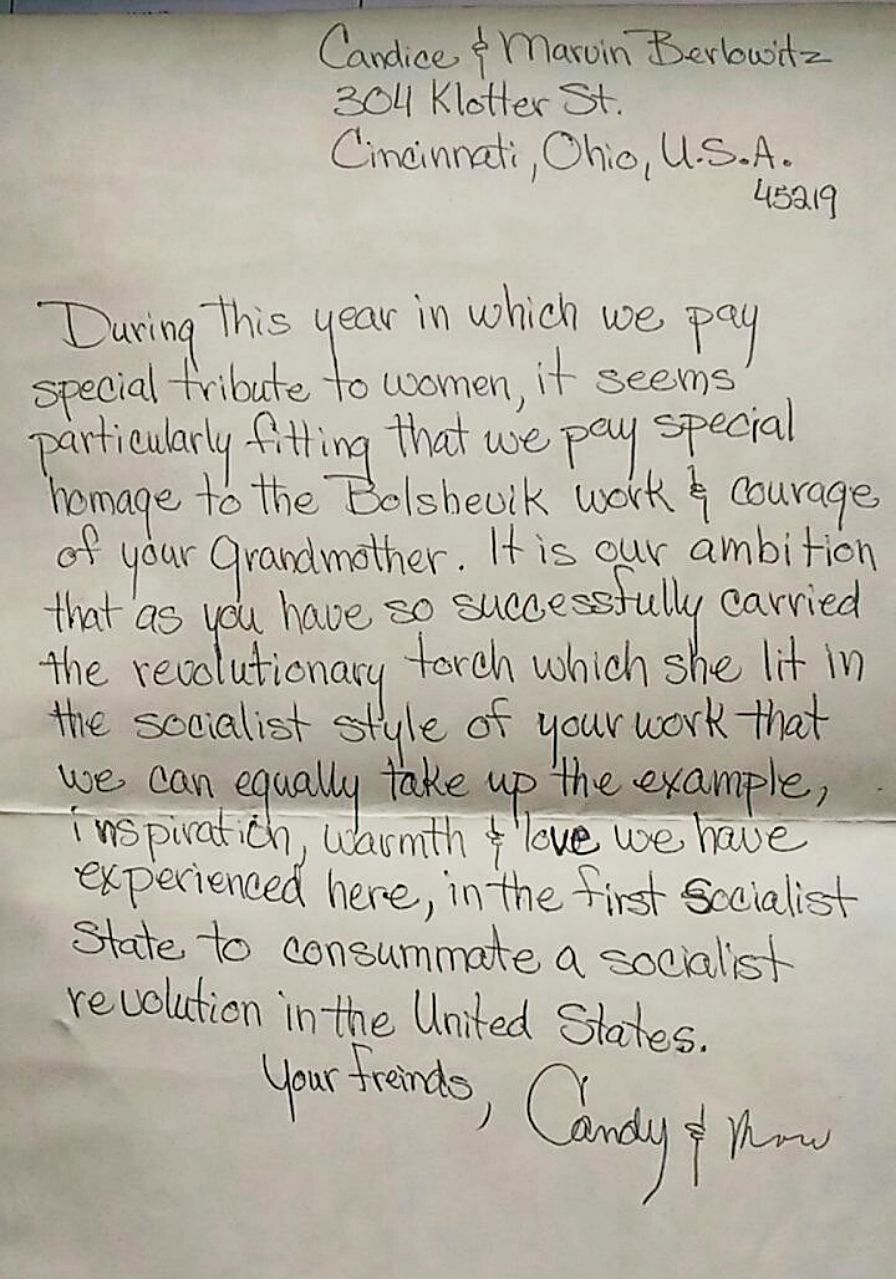 Candice & Marvin Berlowitz
304 Klotter St.
Cincinnati, Ohio, U.S.A.
45219
During this year in which we pay
special tribute to women, it seems
particularly fitting that we pay special
homage to the Bolshevik work & courage
of your Grandmother. It is our ambition
that as you have so successfully carried
the revolutionary torch which she lit in
the socialist style of your work that
we can equally take up the example,
inspiration, warmth & love we have
experienced here, in the first Socialist
State to consummate a socialist
revolution in the United States.
Your freinds, Candy & Marv